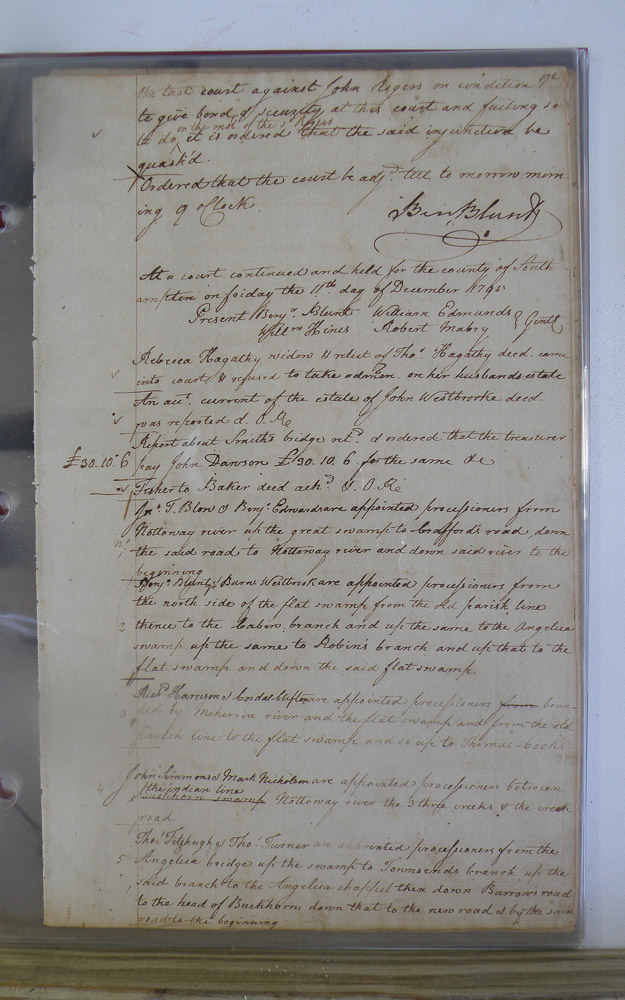 192
the last court against John Rogers on condition
to give bond & security at this court and failing so
on the mot. of the s. Rogers
to do it is ordered that the said injunction be
quash'd.
Ordered that the court be adj.d till to morrow morn
ing 9 o'Clock.
Ben Blunt
At a court continued and held for the county of South
ampton on friday the 11th day of December 1795
Present Benj.n Blunt William Edmunds
Will.m Hines Robert Mabry Gent
Rebecca Hagathy widow & relict of Tho.s Hagathy decd. came
into court & refused to take admon. on her husbands estate
An acc.t current of the estate of John Westbrooke decd
was reported & O. Re
Report about Smith's bridge ret.d & ordered that the treasurer
£30.10.6 pay John Dawson £30.10.6 for the same &c
to Baker deed ack.d & O Re
Jn.o T. Blow & Benj. Edwards are appointed processioners from
Nottoway river up the great swamp to Crafford's road, down
no. 1 the said road to Nottoway river and down said river to the
beginning
Benj.n Blunt & Burn Westbrook are appointed processioners from
the north side of the flat swamp from the old parish line
2 thence to the Cabin branch and up the same to the Angelica
swamp up the same to Robin's branch and up that to the
flat swamp and down the said flat swamp.
Harrison & Cordas Clifton are appointed processioners from boun
3 ded by Meherrin river and the flat swamp and from the old
parish line to the flat swamp and so up to Thomas Cook's
4 John Simmons & Mark Nicholson are appointed processioners between
the indian line
Buckhorn swamp Nottoway river the 3 three creeks & the
road
Tho.s Fitzhugh & Tho.s Turner are appointed processioners from the
5 Angelica bridge up the swamp to Townsends branch up the
said branch to the Angelica chappel then down Barrow's road
to the head of Buckhorn down that to the new road & by the said
road to the beginning